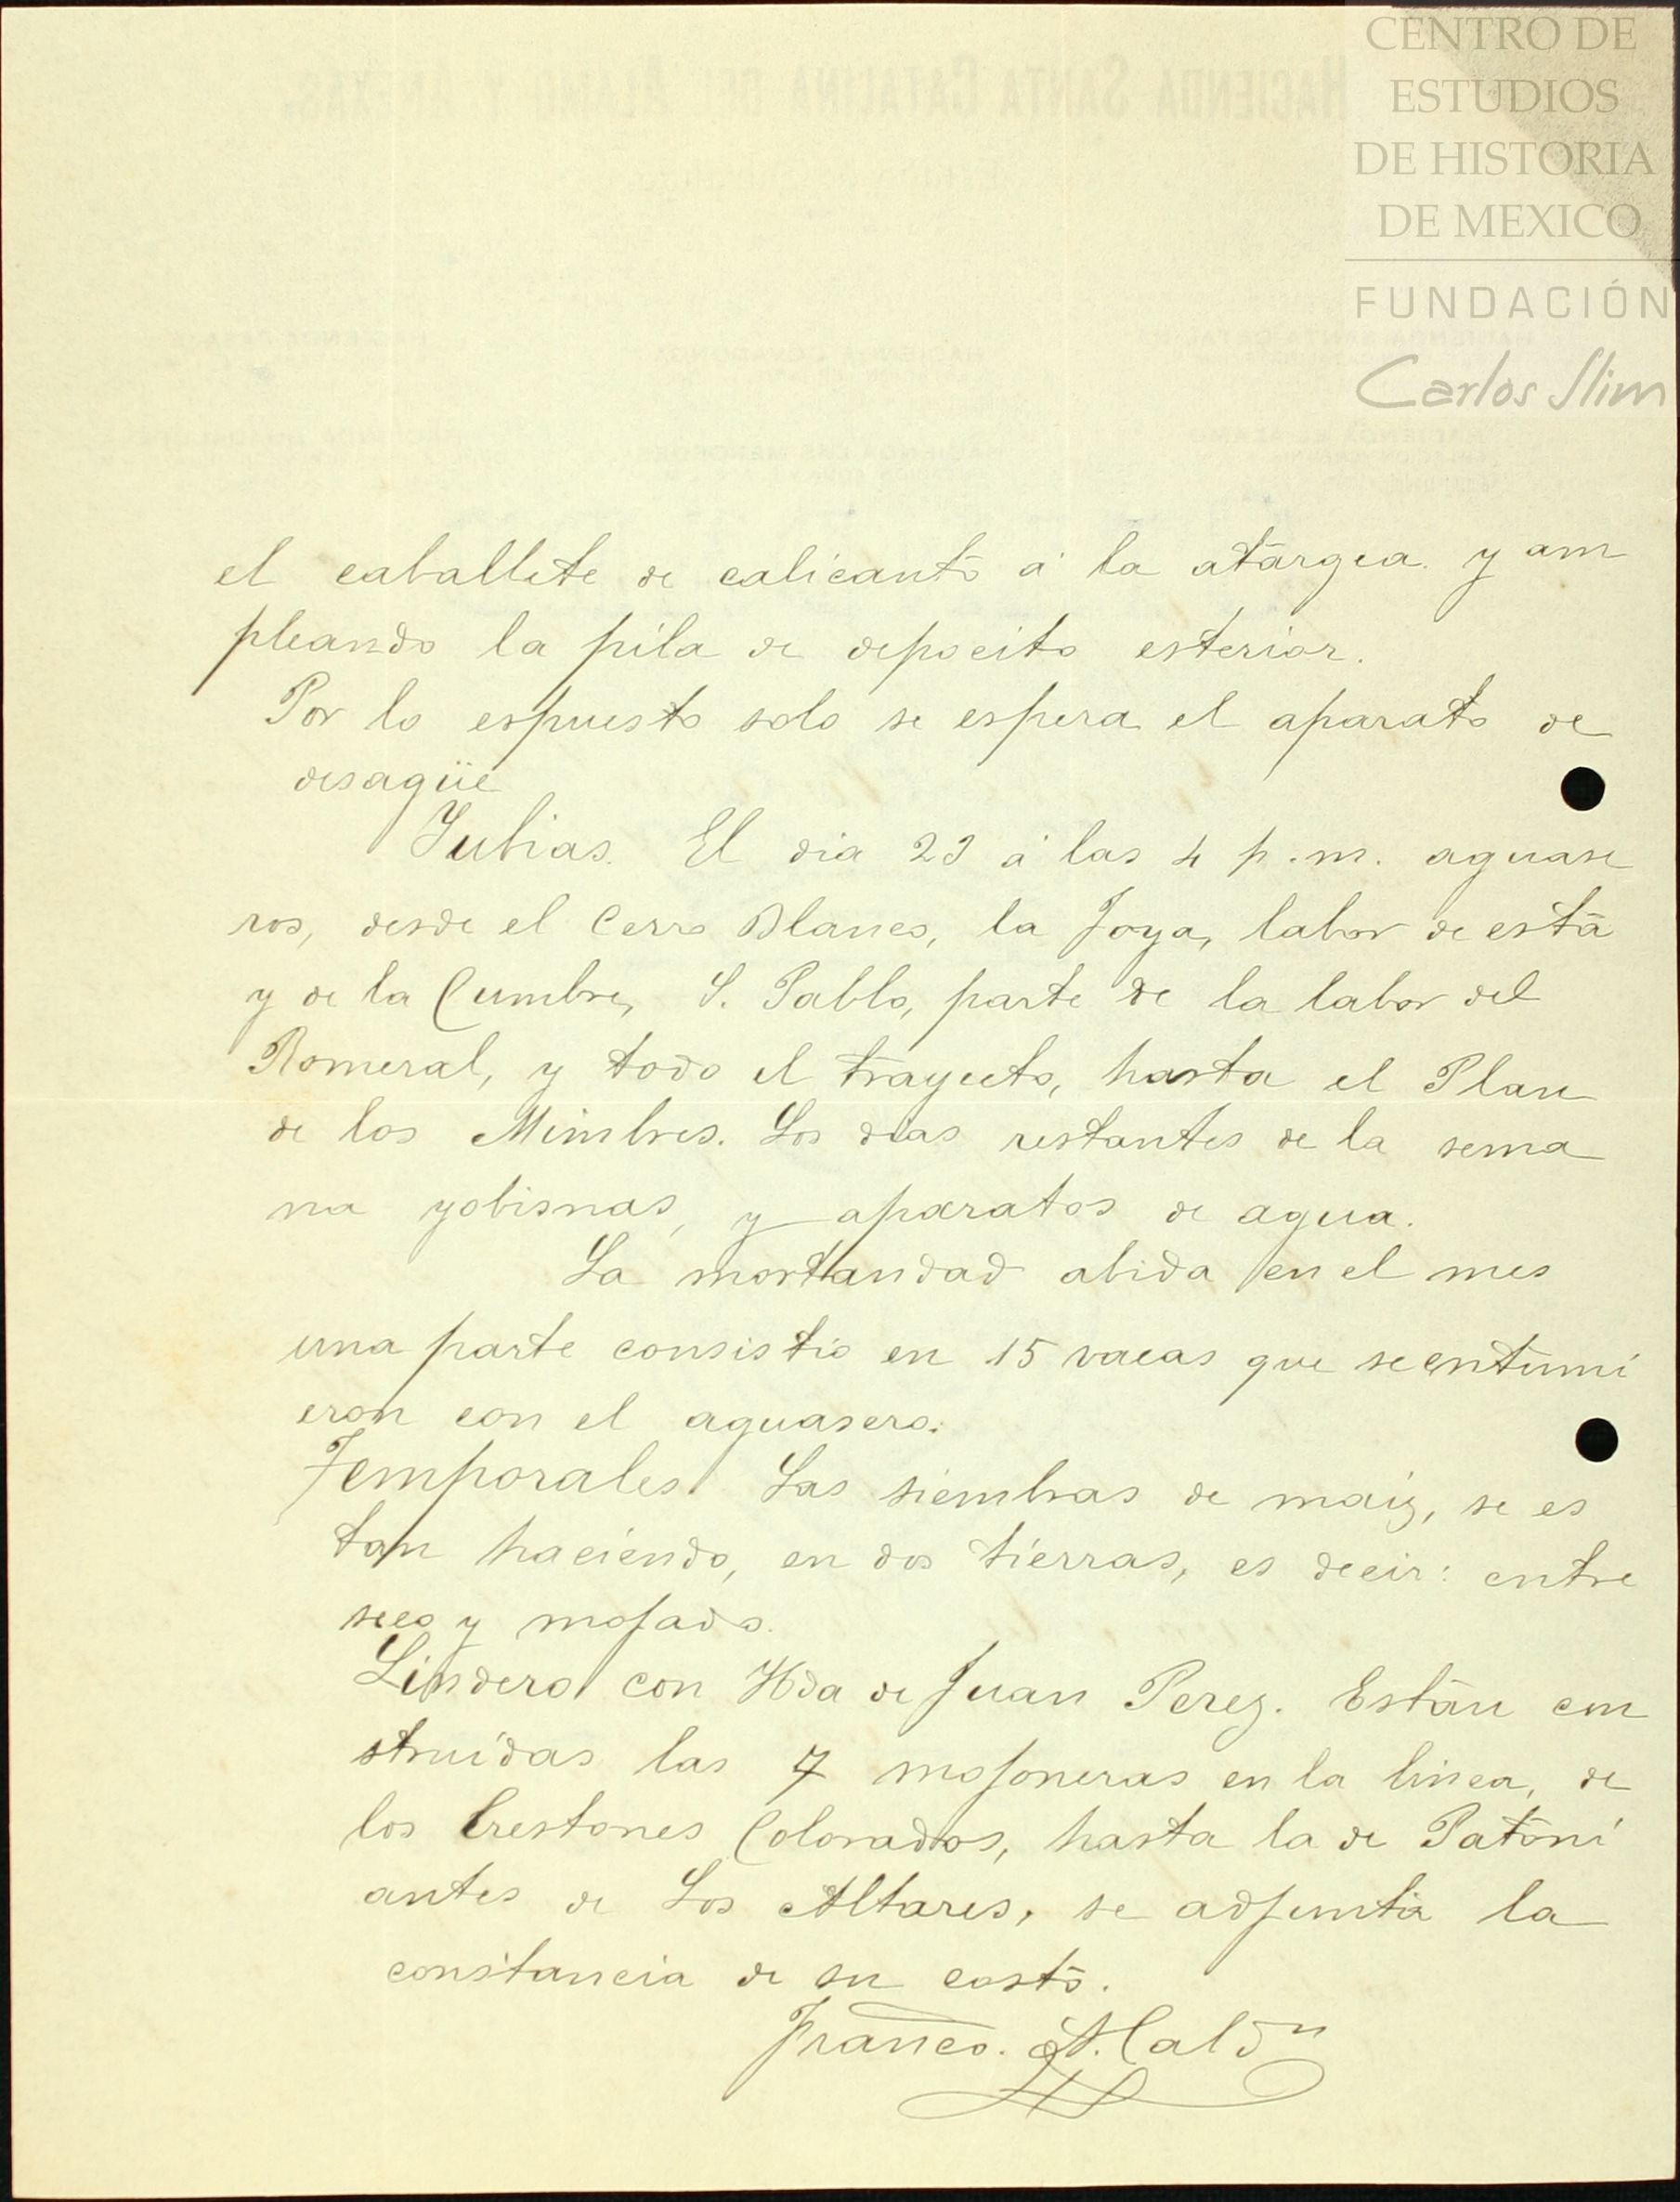 CENTRO DE
ESTUDIOS
DE HISTORIA
DE MEXICO
FUNDACIÓN
Carlos Slim
HACIENDA SANTA CATALINA DEL ALAMO Y ANEXAS.
el caballete de calicanto á la atargea. y am
pleando la pila de depocito esterior.
Por lo espuesto solo se espera el aparato de
desagüe
Yubias. El dia 23 á las 4 p.m. aguase
ros, desde el Cerro Blanco, la Joya, labor de está
y de la Cumbre, S. Pablo, parte de la labor del
Romeral, y todo el trayecto, hasta el Plan
de los Mimbres. Los dias restantes de la sema
na yobisnas, y aparatos de agua.
La mortandad abida en el mes
una parte consistio en 15 vacas que se entumi
eron con el aguasero.
Temporales. Las siembras de maiz, se es
tan haciendo, en dos tierras, es decir: entre
seco y mojado.
Lindero con Hda de Juan Perez. Están con
struidas las 7 mojoneras en la linea, de
los Crestones Colorados, hasta la de Patoni
antes de Los Altares, se adjunta la
constancia de su costo.
Franco.